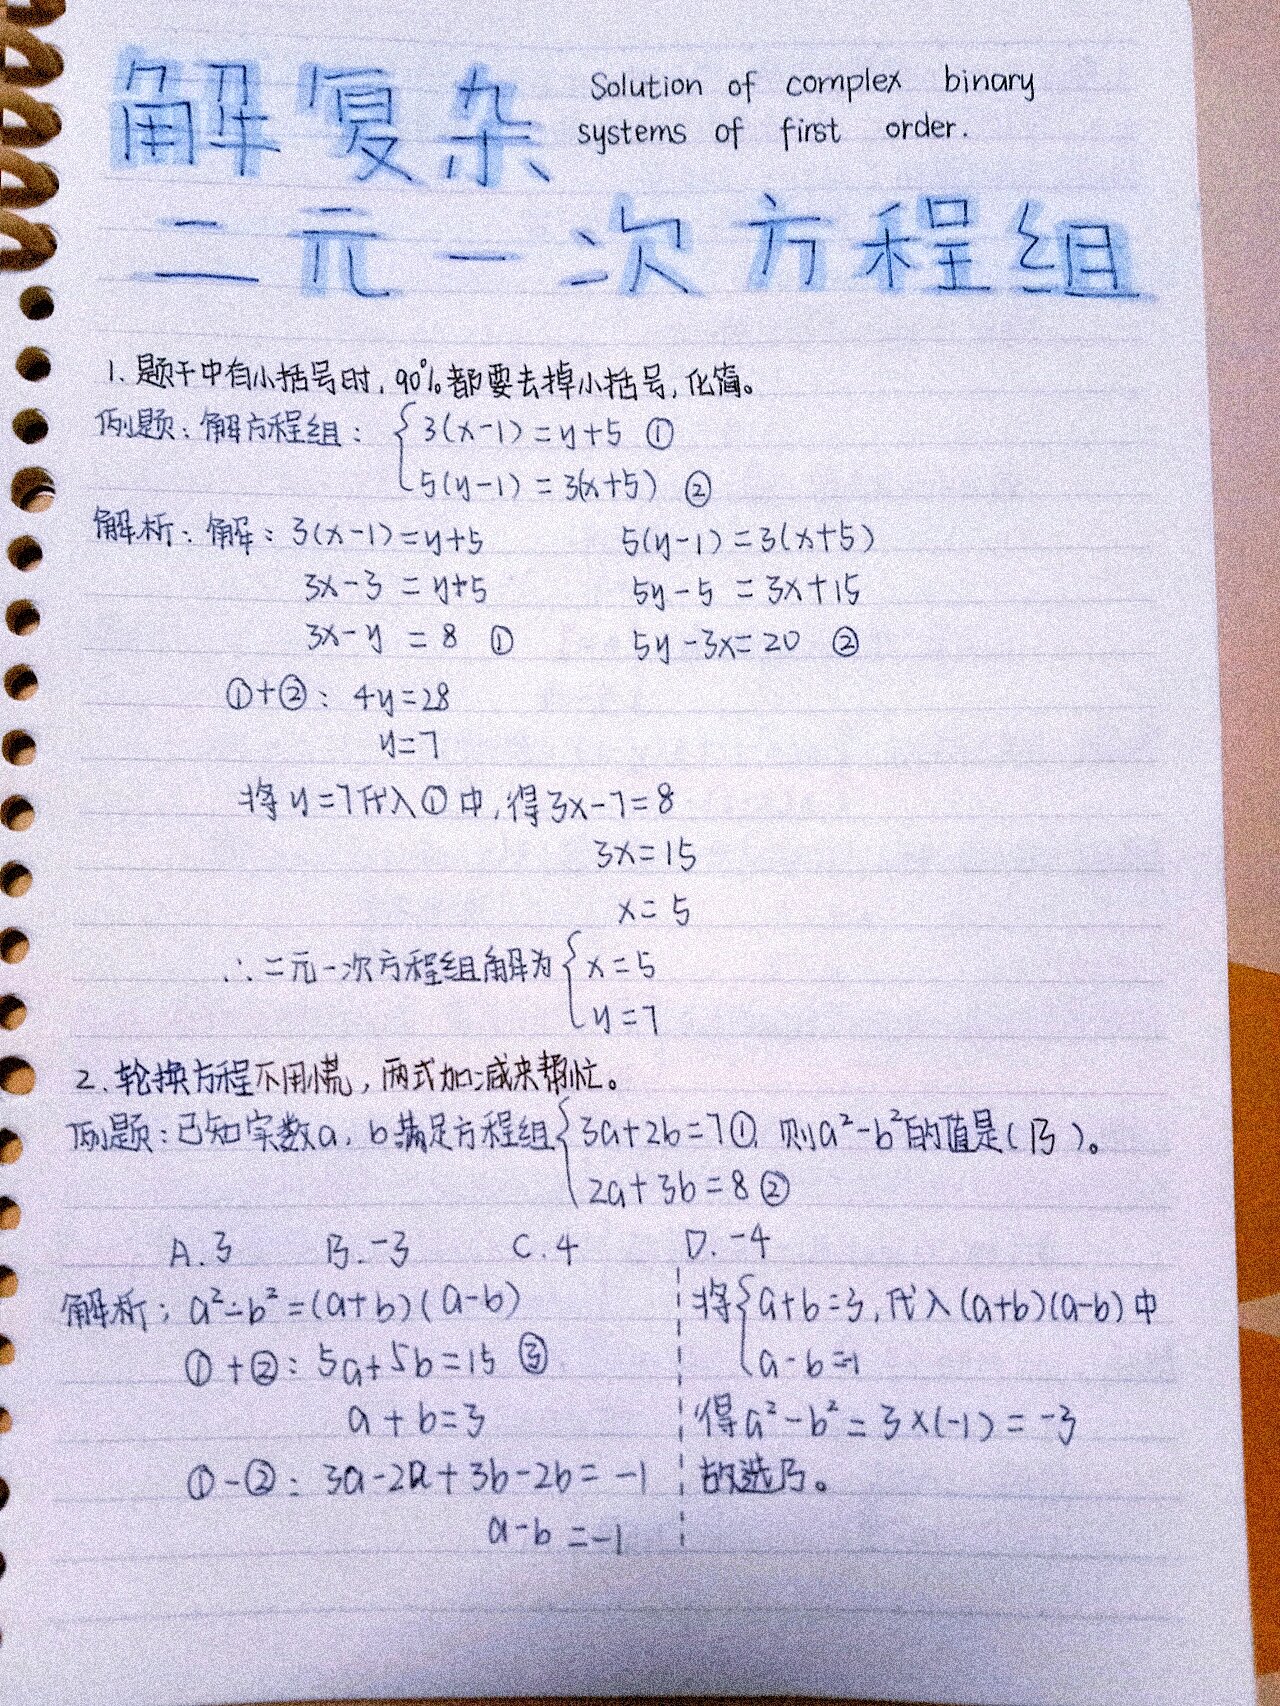 解复杂
Solution of complex binary
systems of first order.
二元一次方程组
1、题干中有小括号时，90%都要去掉小括号，化简。
例题：解方程组：{3(x-1)=y+5 ①
5(y-1)=3(x+5) ②
解析：解：3(x-1)=y+5 5(y-1)=3(x+5)
3x-3=y+5 5y-5=3x+15
3x-y=8 ① 5y-3x=20 ②
①+②：4y=28
y=7
将y=7代入①中，得3x-7=8
3x=15
x=5
∴二元一次方程组解为{x=5
y=7
2、轮换方程不用慌，两式加减来帮忙。
例题：已知实数a，b满足方程组{3a+2b=7①，则a²-b²的值是(B)。
2a+3b=8②
A.3 B.-3 C.4 D.-4
解析：a²-b²=(a+b)(a-b)
①+②：5a+5b=15 ③
a+b=3
①-②：3a-2a+3b-2b=-1
a-b=-1
将{a+b=3，代入(a+b)(a-b)中
a-b=-1
得a²-b²=3×(-1)=-3
故选B。